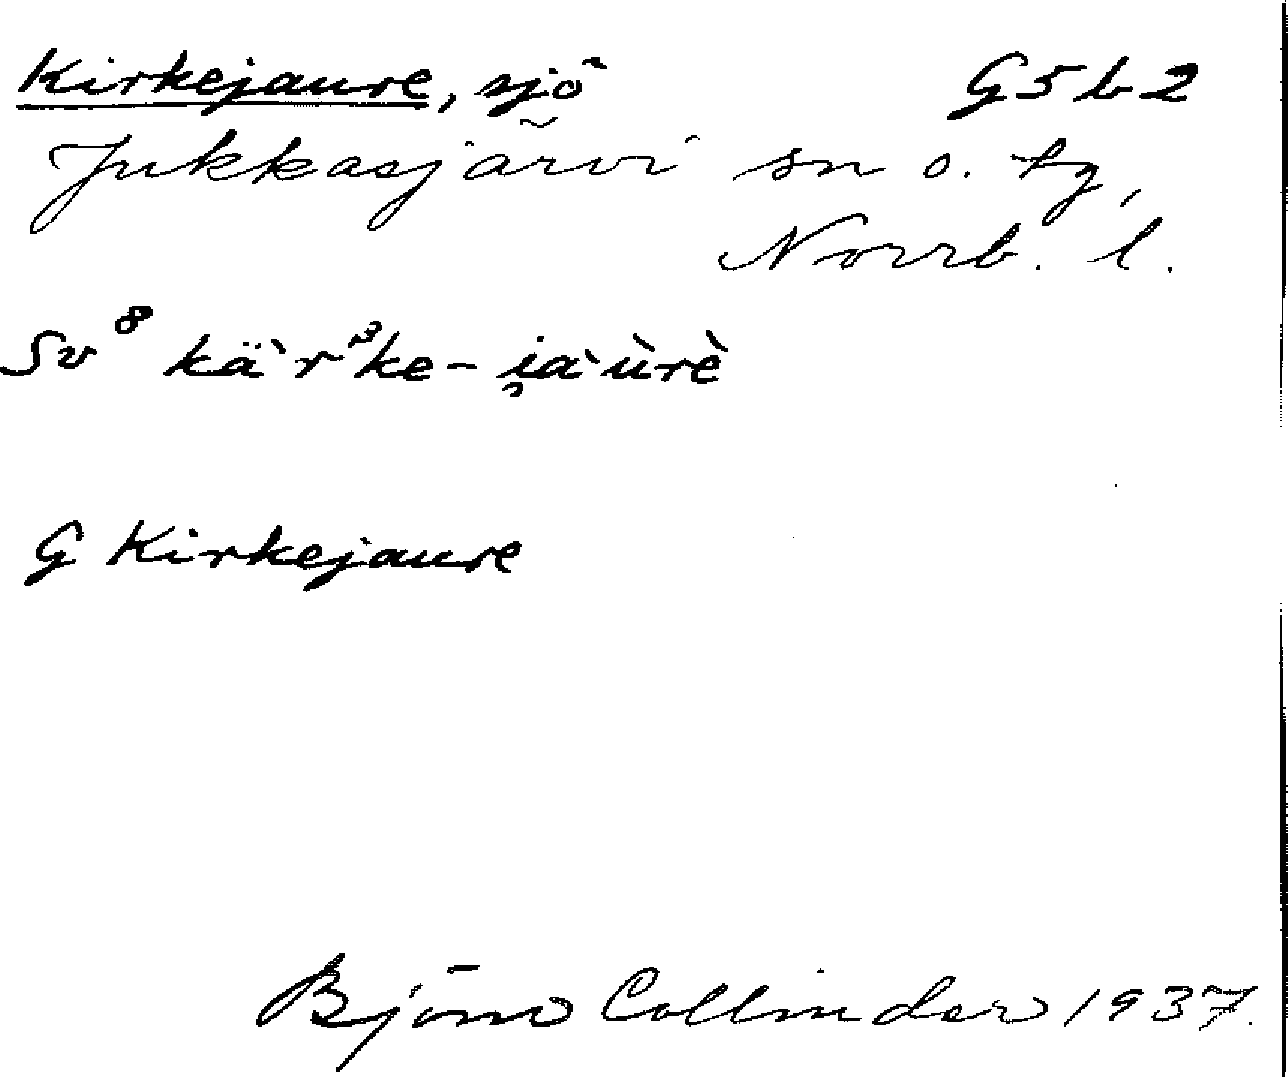 Kirkejaure, sjö G5b2
Jukkasjärvi sn o. tg,
Norrb. l.
Sv⁸ kä̀r³ke-i̯àùrè
G Kirkejaure
Björn Collinder 1937.